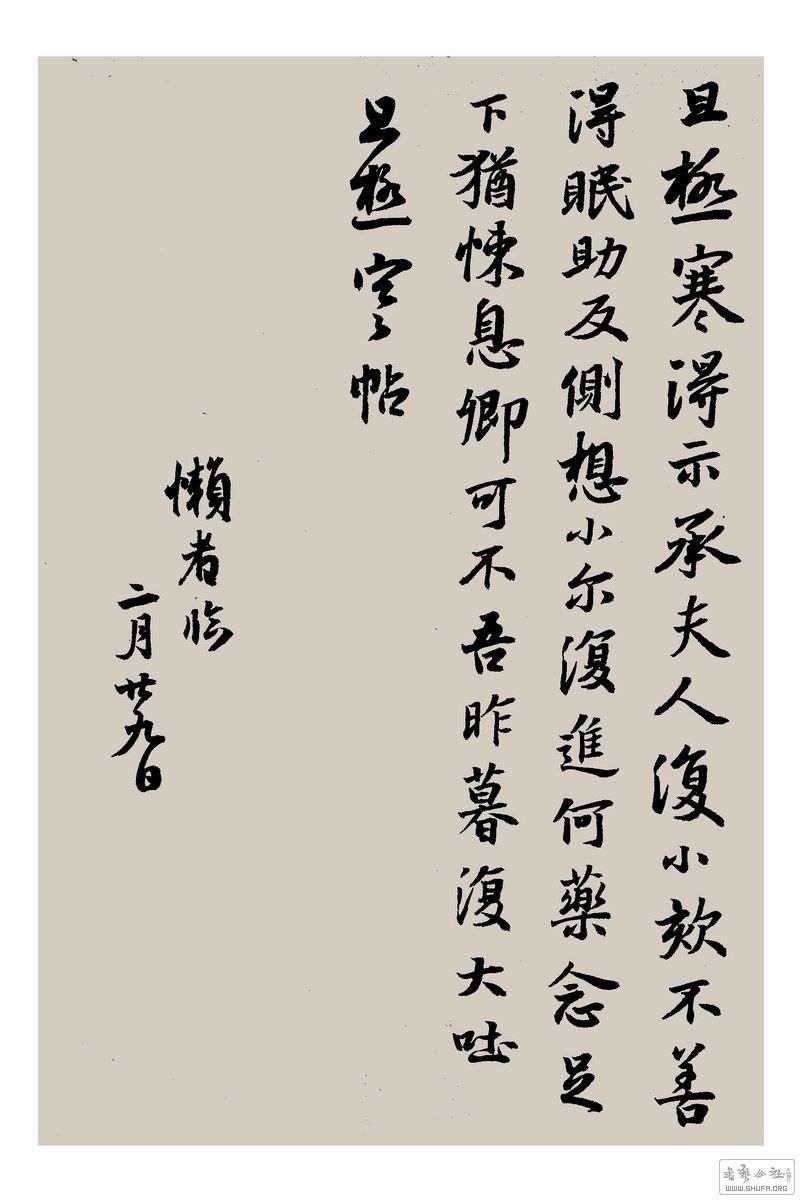 旦極寒得示承夫人復小欬不善
得眠助反側想小尔復進何藥念足
下猶悚息卿可不吾昨暮復大吐
旦極寒帖
懶者臨
二月廿九日
書藝公社
WWW.SHUFA.ORG